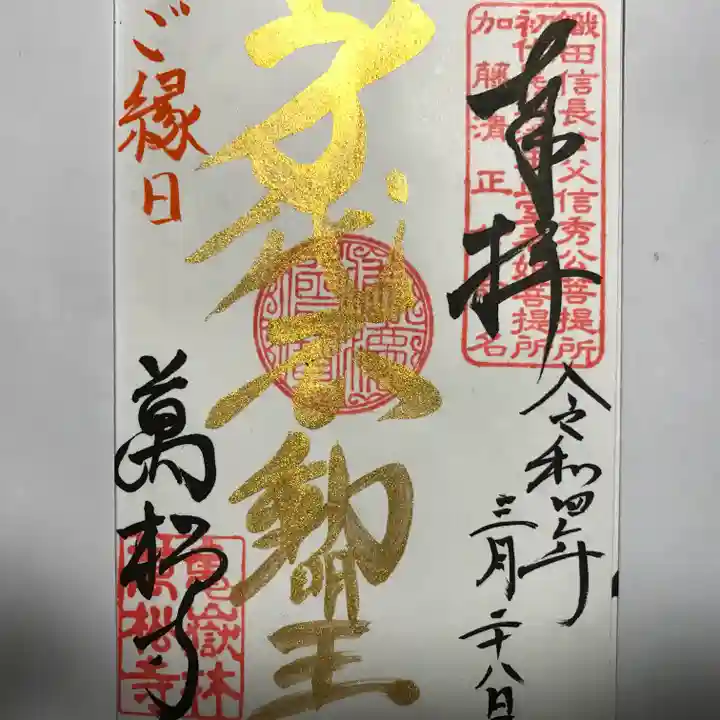 奉拝
令和四年
三月二十八日
織田信長公父信秀公菩提所
加藤清正
身代不動明王
ご縁日
萬松寺
亀嶽林
萬松寺